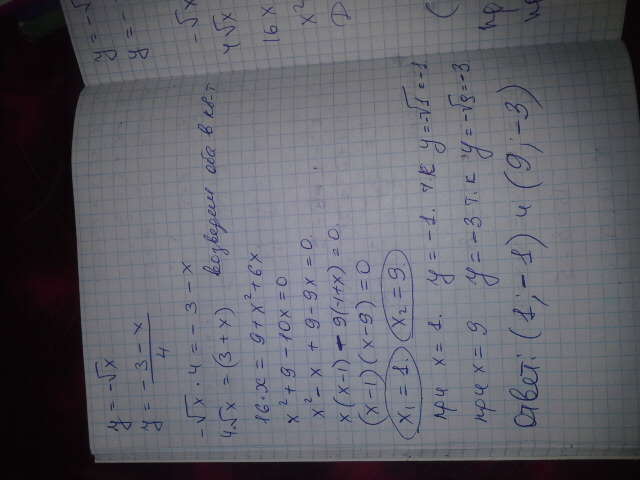 y = -√x
y = -3-x/4
-√x · 4 = -3 - x
4√x = (3+x) возведем оба в кв-т
16·x = 9 + x² + 6x
x² + 9 - 10x = 0
x² - x + 9 - 9x = 0.
x(x-1) - 9(-1+x) = 0.
(x-1)(x-9) = 0
x₁ = 1. x₂ = 9.
при x = 1. y = -1. т.к y = -√1 = -1
при x = 9 y = -3 т.к y = -√9 = -3
Ответ: (1; -1) и (9; -3)
y = -√
y = -
-√x
4√x
16x
x²
D
(
пр